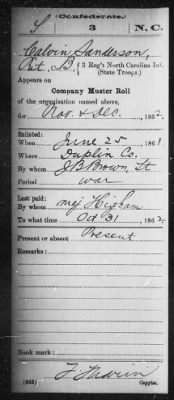 S (Confederate.) N.C.
3
Calvin Sanderson,
Pvt, B 3 Reg't North Carolina Inf.
(State Troops.)
Appears on
Company Muster Roll
of the organization named above,
for Nov. & Dec., 1862.
Enlisted:
When June 25, 1861
Where Duplin Co.
By whom J B Brown, Lt
Period war
Last paid:
By whom Maj Higham
To what time Oct 31, 1862.
Present or absent Present
Remarks:
Book mark:
Copyist.